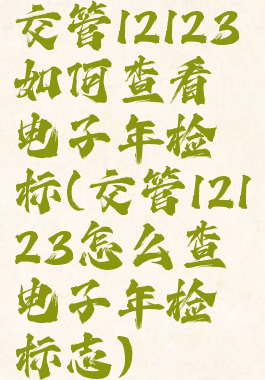 交管12123
如何查看
电子年检
标(交管121
23怎么查
电子年检
标志)